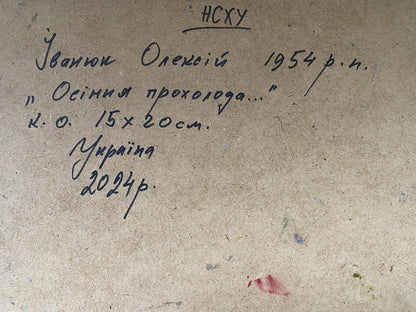 НСХУ
Іванюк Олексій 1954 р.н.
„Осіння прохолода..."
к.о. 15х20см.
Україна
2024р.